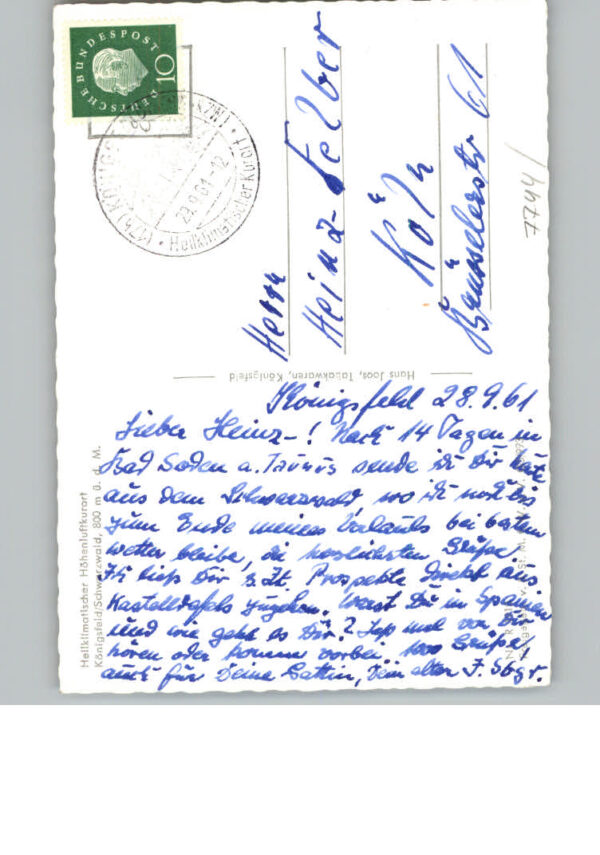 DEUTSCHE BUNDESPOST
10
Heilklimatischer Kurort
Herrn
Heinz Felber
Köln
Brüsselerstr 61
7744/
Hans Joos, Tabakwaren, Königsfeld
Heilklimatischer Höhenluftkurort
Königsfeld/Schwarzwald, 800 m ü. d. M.
Königsfeld 28.9.61
Lieber Heinz-! Nach 14 Tagen in
Bad Soden a. Taunus sende ich Dir heute
aus dem Schwarzwald, wo ich noch bis
zum Ende meines Urlaubs bei bestem
Wetter bleibe, die herzlichsten Grüße.
Ich ließ Dir z. Zt. Prospekte direkt aus
zugehen. Warst Du in Spanien
und wie geht es Dir? Laß mal von Dir
hören oder komme vorbei 1000 Grüße,
auch für Deine Gattin, Dein alter